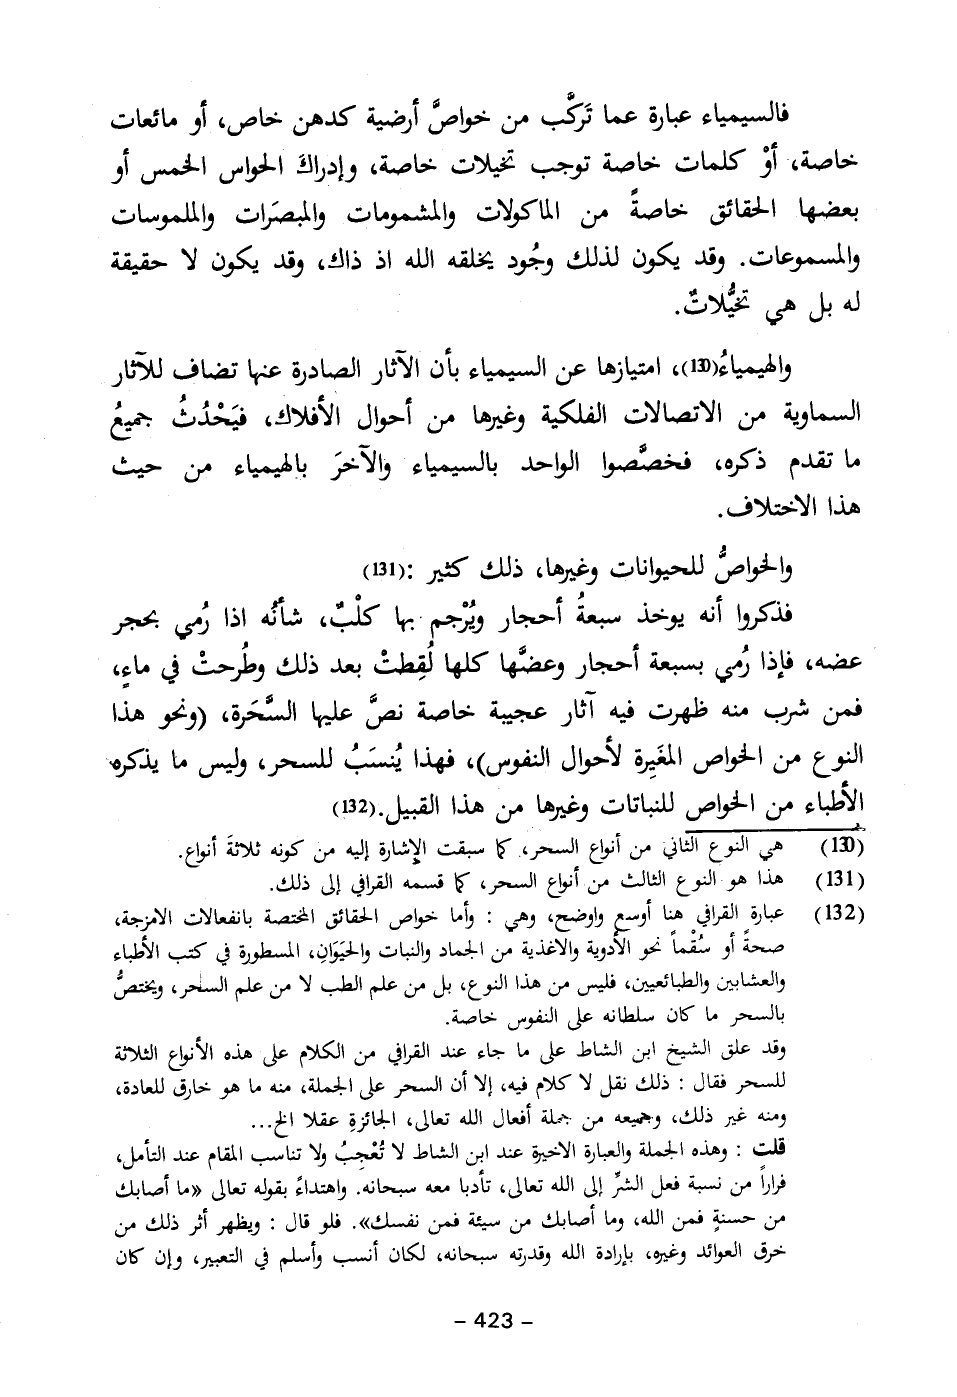 فالسيمياء عبارة عما تَركَّب من خواصَّ أرضية كدهن خاص، أو مائعات
خاصة، أوْ كلمات خاصة توجب تخيلات خاصة، وإدراكَ الحواس الخمس أو
بعضها الحقائق خاصةً من الماكولات والمشمومات والمبصَرات والملموسات
والمسموعات. وقد يكون لذلك وجُود يخلقه الله اذ ذاك، وقد يكون لا حقيقة
له بل هي تخيُّلاتٌ.
والهيمياءُ(130)، امتيازها عن السيمياء بأن الآثار الصادرة عنها تضاف للآثار
السماوية من الاتصالات الفلكية وغيرها من أحوال الأفلاك، فيَحْدُثُ جميعُ
ما تقدم ذكره، فخصَّصوا الواحد بالسيمياء والآخرَ بالهيمياء من حيث
هذا الاختلاف.
والخواصُّ للحيوانات وغيرها، ذلك كثير :(131)
فذكروا أنه يوخذ سبعةُ أحجار ويُرْجم بها كلْبٌ، شأنُه اذا رُمي بحجر
عضه، فإذا رُمي بسبعة أحجار وعضَّها كلها لُقِطتْ بعد ذلك وطُرحتْ في ماءٍ،
فمن شرب منه ظهرت فيه آثار عجيبة خاصة نصَّ عليها السَّحَرة، (ونحو هذا
النوع من الخواص المغَيِرة لأحوال النفوس)، فهذا يُنسَبُ للسحر، وليس ما يذكره
الأطباء من الخواص للنباتات وغيرها من هذا القبيل.(132)
(130) هي النوع الثاني من أنواع السحر، كما سبقت الإشارة إليه من كونه ثلاثةَ أنواع.
(131) هذا هو النوع الثالث من أنواع السحر، كما قسمه القرافي إلى ذلك.
(132) عبارة القرافي هنا أوسع واوضح، وهي : وأما خواص الحقائق المختصة بانفعالات الامزجة،
صحةً أو سُقْماً نحو الأدوية والاغذية من الجماد والنبات والحيَوَانِ، المسطورة في كتب الأطباء
والعشابين والطبائعيين، فليس من هذا النوع، بل من علم الطب لا من علم السحر، ويختصُّ
بالسحر ما كان سلطانه على النفوس خاصة.
وقد علق الشيخ ابن الشاط على ما جاء عند القرافي من الكلام على هذه الأنواع الثلاثة
للسحر فقال : ذلك نقل لا كلام فيه، إلا أن السحر على الجملة، منه ما هو خارق للعادة،
ومنه غير ذلك، وجميعه من جملة أفعال الله تعالى، الجائزةِ عقلا الخ...
قلت : وهذه الجملة والعبارة الاخيرة عند ابن الشاط لا تُعْجِبُ ولا تناسب المقام عند التأمل،
فراراً من نسبة فعل الشرِّ إلى الله تعالى، تأدبا معه سبحانه. واهتداءً بقوله تعالى «ما أصابك
من حسنةٍ فمن الله، وما أصابك من سيئة فمن نفسك». فلو قال : ويظهر أثر ذلك من
خرق العوائد وغيره، بإرادة الله وقدرته سبحانه، لكان أنسب وأسلم في التعبير، وإن كان
- 423 -